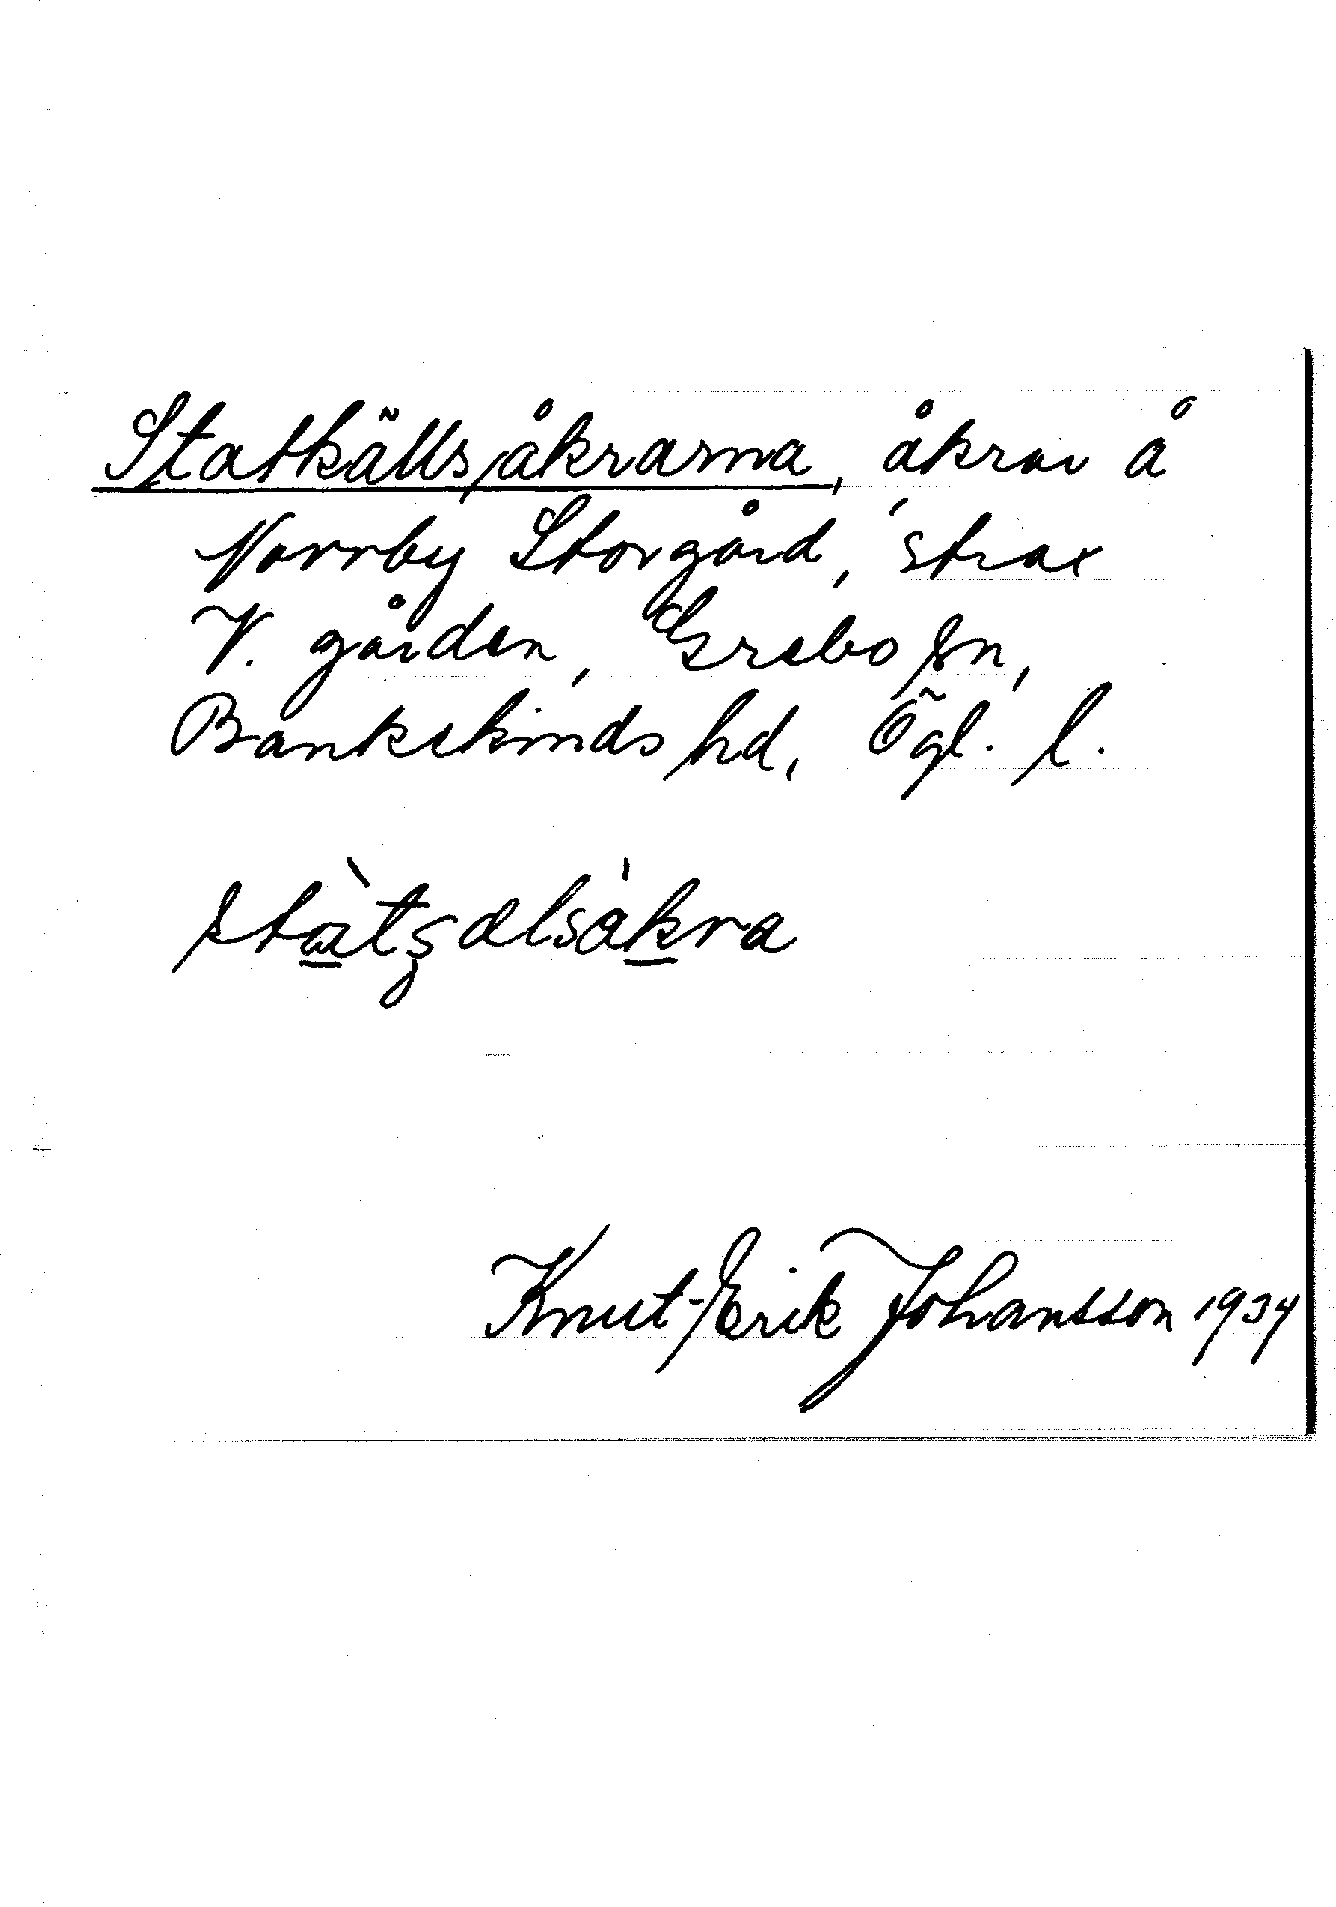 Statkälls/åkrarna, åkrar å
Norrby Storgård, strax
V. gården, Grebo sn,
Bankekinds hd, Ögl. l.
Knut-Erik Johansson 1934